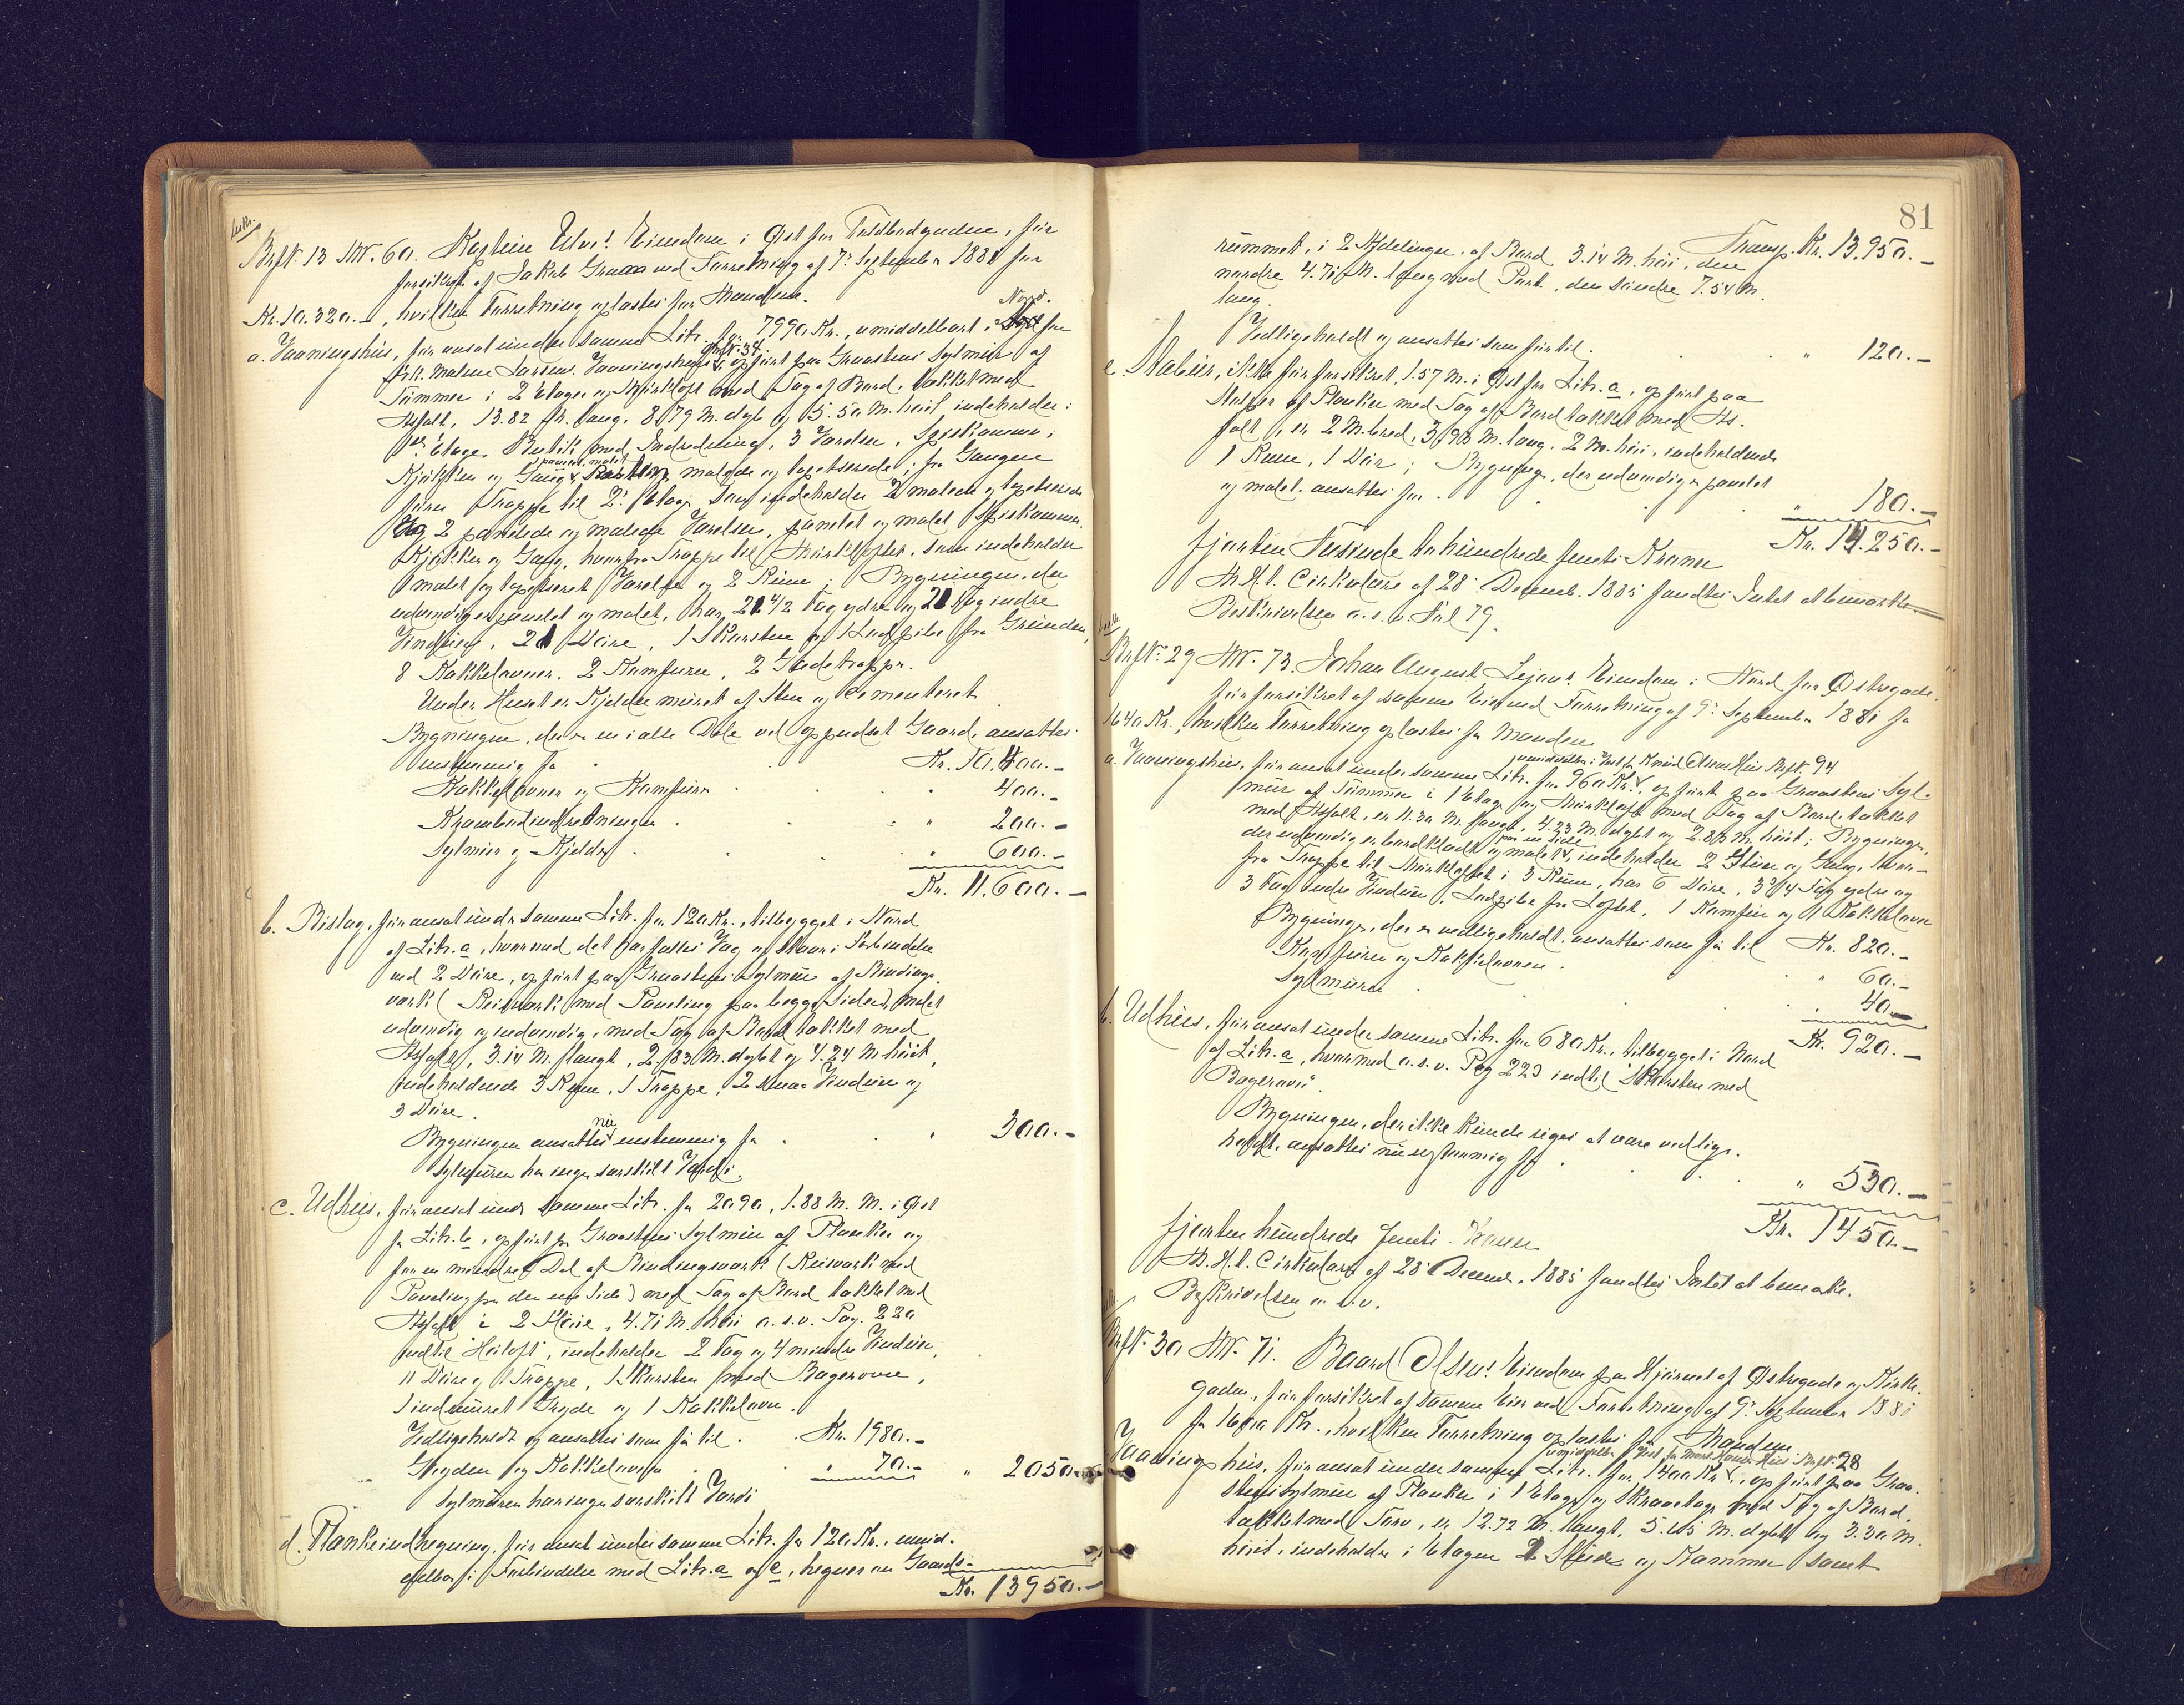 BrfN. 13 MN. 60. Kaptein Udv! Eiendom i Øst for Toldbodgaden, før
forsikret af Jakob Gram ved Forretning af 7' September 1881 for
Kr. 10.320.–, hvilken Forretning oplastes for Manden.
a. Vaaningshus, før ansat under samme Litr. for 7990 Kr., umiddelbart i Nord for
Frk. Maline Larsens Vaaningshus BrfN. 34. opført paa Graastens Sylmur af
Tømmer i 2 Etager og Mørkloft med Tag af Bord, tækket med
Asfalt, 13.82 M. lang, 8.79 M. dyb og 5.50 M. høit, indeholder i
1ste Etage Butik med Indredning, 3 Værelser, Spiskammer,
Kjøkken og Gang, panelt, malet, malede og tapetserede; fra Gangen
fører Trappe til 2' Etage, som indeholder 2 malede og tapetserede
og 2 panelede og malede Værelser, panelet og malet Spiskammer,
Kjøkken og Gang, hvorfra Trappe til Mørkloftet, som indeholder
1 malet og tapetseret Værelse og 2 Rum; Bygningen, der
udvendig er panelet og malet, har 21 4/2 Fag ydre og 21 Fag indre
Vinduer, 21 Døre, 1 Skorsten og 1 Ludpibe fra Grunden,
8 Kakkelovner, 2 Komfurer, 2 Gadetrapper.
Under Huset er Kjelder muret af Sten og Cementeret.
Bygningen, der er en i alle Dele vel oppudset Gaard, ansattes
enstemmig for Kr. 10.400.–
Kakkelovner og Komfurer " 400.–
Krambodindretningen " 200.–
Sylmur og Kjelder " 600.–
Kr. 11.600.–
b. Bislag, før ansat under samme Litr. for 120 Kr., tilbygget i Nord
af Litr. a, hvormed det har fælles Tag og staar i Forbindelse
ved 2 Døre, opført paa Graastens Sylmur af Bindings-
værk (Reisværk med Paneling paa begge Sider), malet
udvendig og indvendig, med Tag af Bord tækket med
Asfalt, 3.14 M. langt, 2.83 M. dybt og 4.24 M. høit,
indeholdende 3 Rum, 1 Trappe, 2 smaa Vinduer og
3 Døre.
Bygningen ansattes nu enstemmig for " 300.–
Sylmuren har ingen særskilt Værdi.
c. Udhus, før ansat under samme Litr. for 2090, 1.88 M. M. i Øst
for Litr. b, opført paa Graastens Sylmur af Planker og
for en mindre Del af Bindingsværk (Reisværk med
Paneling paa den ene Side) med Tag af Bord tækket med
Asfalt i 2 Høider, 4.71 M. høi o. s. v. Pag. 220
indtil "Høiloft", indeholder 2 Fag og 4 mindre Vinduer,
11 Døre, 1 Trappe, 1 Skorsten med Bagerovn,
1 indmuret Gryde og 1 Kakkelovn.
Vedligeholdt og ansattes som før til Kr. 1980.–
Gryden og Kakkelovnen " 70.– " 2050.–
Sylmuren har ingen særskilt Værdi
d. Plankeindhegning, før ansat under samme Litr. for 120 Kr., umid-
delbar i Forbindelse med Litr. a og c, hegner om Gaards-
Kr. 13950.–
81
Transp. Kr. 13.950.–
rummet, i 2 Afdelinger, af Bord 3.14 M. høi, den
nordre 4.71 M. lang med Port, den søndre 7.54 M.
lang.
Vedligeholdt og ansattes som før til " 120.–
e. Stabur, ikke før forsikret, 1.57 M. i Øst for Litr. a, opført paa
Stolper af Planker med Tag af Bord tækket med As-
falt, er 2 M. bred, 3.98 M. lang, 2 M. høi, indeholdende
1 Rum, 1 Dør; Bygningen, der udvendig er panelet
og malet, ansattes for " 180.–
Kr. 14.250.–
fjorten Tusinde tohundrede femti Kroner
Ifl. Cirkulære af 28' Decemb. 1885 fandtes Intet at bemærke
Beskrivelsen o. s. v. Fol 79.
BrfN. 29 MN. 73. Johan August Lejon's Eiendom i Nord for Østregade,
før forsikret af samme Eier ved Forretning af 9' September 1881 for
1640 Kr., hvilken Forretning oplastes for Manden
a. Vaaningshus, før ansat under samme Litr. for 960 Kr., umiddelbar i Vest for Knud Olsens Hus BrfN. 94 opført paa Graastens Syl-
mur af Tømmer i 1 Etage og Mørkloft med Tag af Bord, tækket
med Asfalt, er 11.30 M. langt, 4.23 M. dybt og 2.83 M. høit; Bygningen,
der udvendig er bordklædt og malet paa en Side, indeholder 2 Stuer og Gang, hvor-
fra Trappe til Mørkloftet i 3 Rum, har 6 Døre, 3 3/4 Fag ydre og
3 Fag indre Vinduer, Ludpibe fra Loftet, 1 Komfur og 1 Kakkelovn
Bygningen, der er vedligeholdt, ansattes som før til Kr. 820.–
Komfuren og Kakkelovnen " 60.–
Sylmuren " 40.–
Kr. 920.–
b. Udhus, før ansat under samme Litr. for 680 Kr., tilbygget i Nord
af Litr. a, hvormed o. s. v. Pag 223 indtil "Skorsten med
Bagerovn".
Bygningen, der ikke kunde siges at være vedlige-
holdt, ansattes nu enstemmig for " 530.–
Kr. 1450.–
fjorten hundrede femti Kroner
Ifl. Cirkulære af 28' Decemb. 1885 fandtes Intet at bemærke.
Beskrivelsen o. s. v.
BrfN. 30 MN. 71. Baard Olsens Eiendom paa Hjørnet af Østregade og Kirke-
gaden, før forsikret af samme Eier ved Forretning af 9' September 1881
for 1600 Kr., hvilken Forretning oplastes for Manden
Vaaningshus, før ansat under samme Litr. for 1400 Kr., umiddelbar i Vest for Hus BrfN. 28 opført paa Graa-
stens Sylmur af Planker i 1 Etage og Skraatage med Tag af Bord,
tækket med Torv, er 12.72 M. langt, 5.65 M. dybt og 3.30 M.
høit, indeholder i Etagen 2 Stuer og Kammer samt